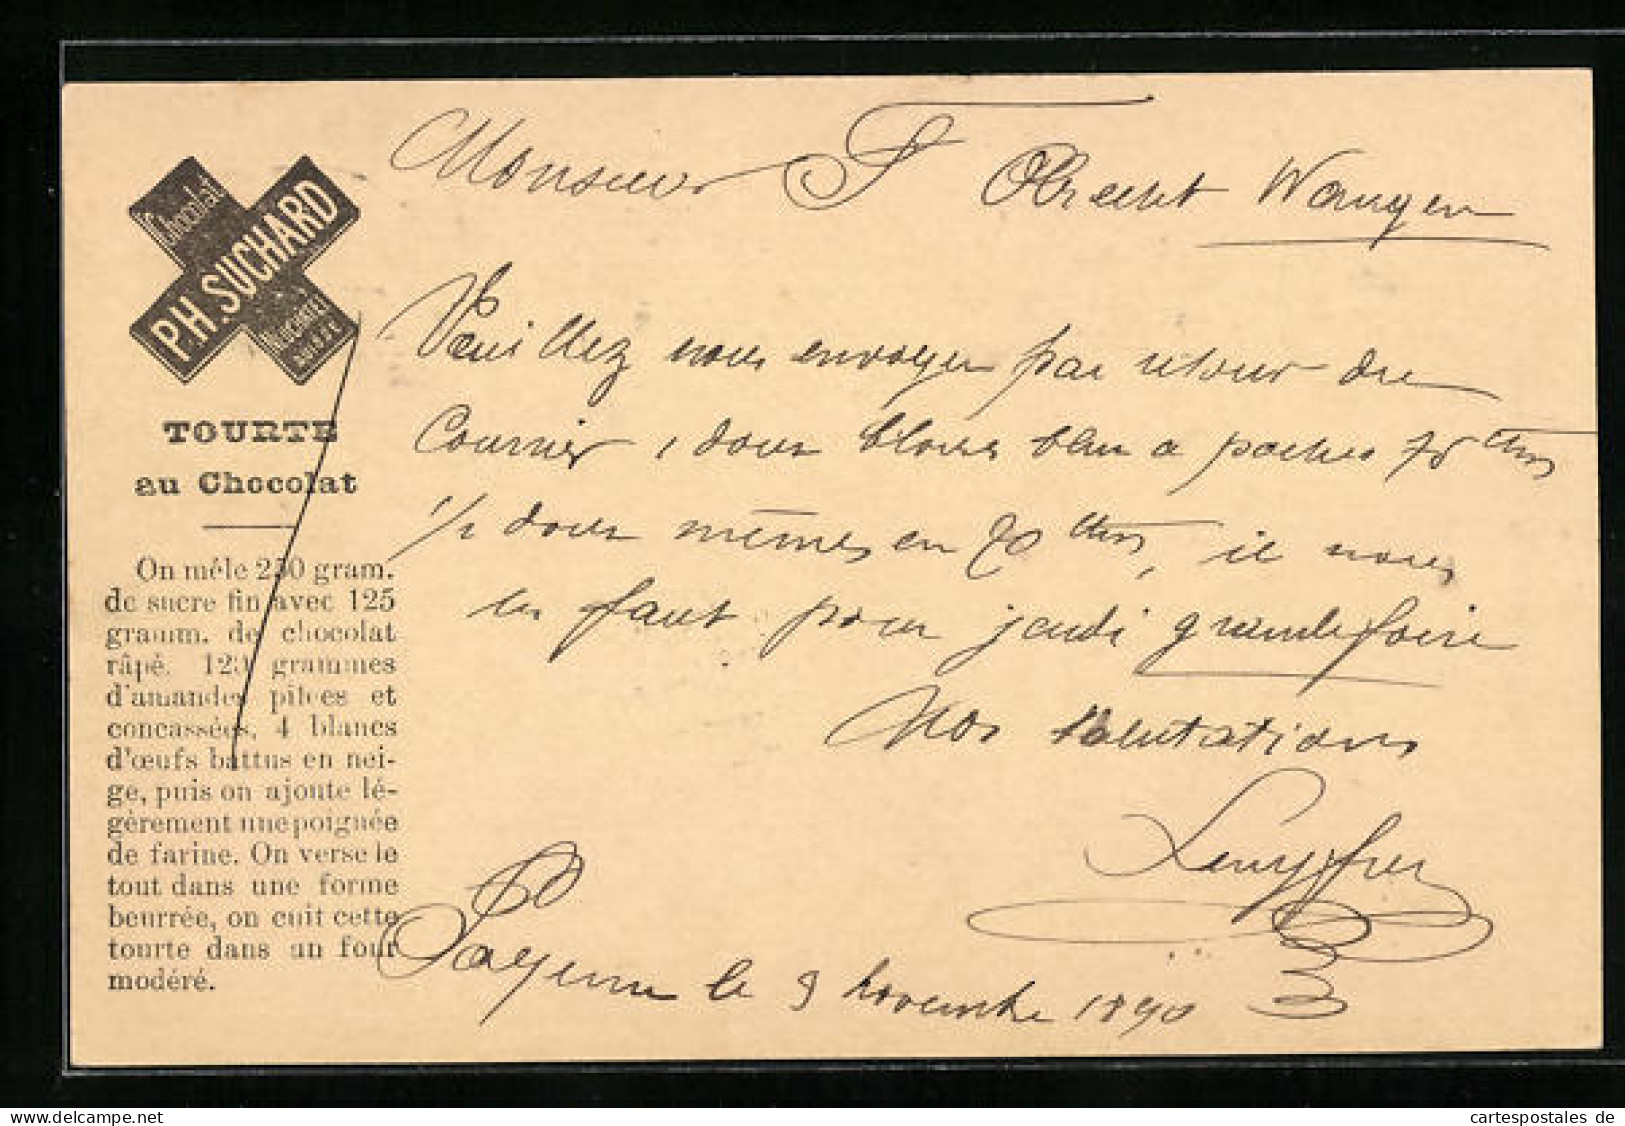 Chocolat
PH. SUCHARD
TOURTE
au Chocolat
On mêle 250 gram.
de sucre fin avec 125
gramm. de chocolat
râpé. 125 grammes
d'amandes pilées et
concassées, 4 blancs
d'œufs battus en nei-
ge, puis on ajoute lé-
gèrement une poignée
de farine. On verse le
tout dans une forme
beurrée, on cuit cette
tourte dans un four
modéré.
Monsieur F Obrecht Wangen
Veuillez nous envoyer par retour du
Courrier, 1 douz blouses bleu a poches 75 ctm
1/2 douz mêmes en 70 ctm, il nous
les faut pour jeudi grande foire
Nos salutations
Payerne le 9 novembre 1890
cartespostales de